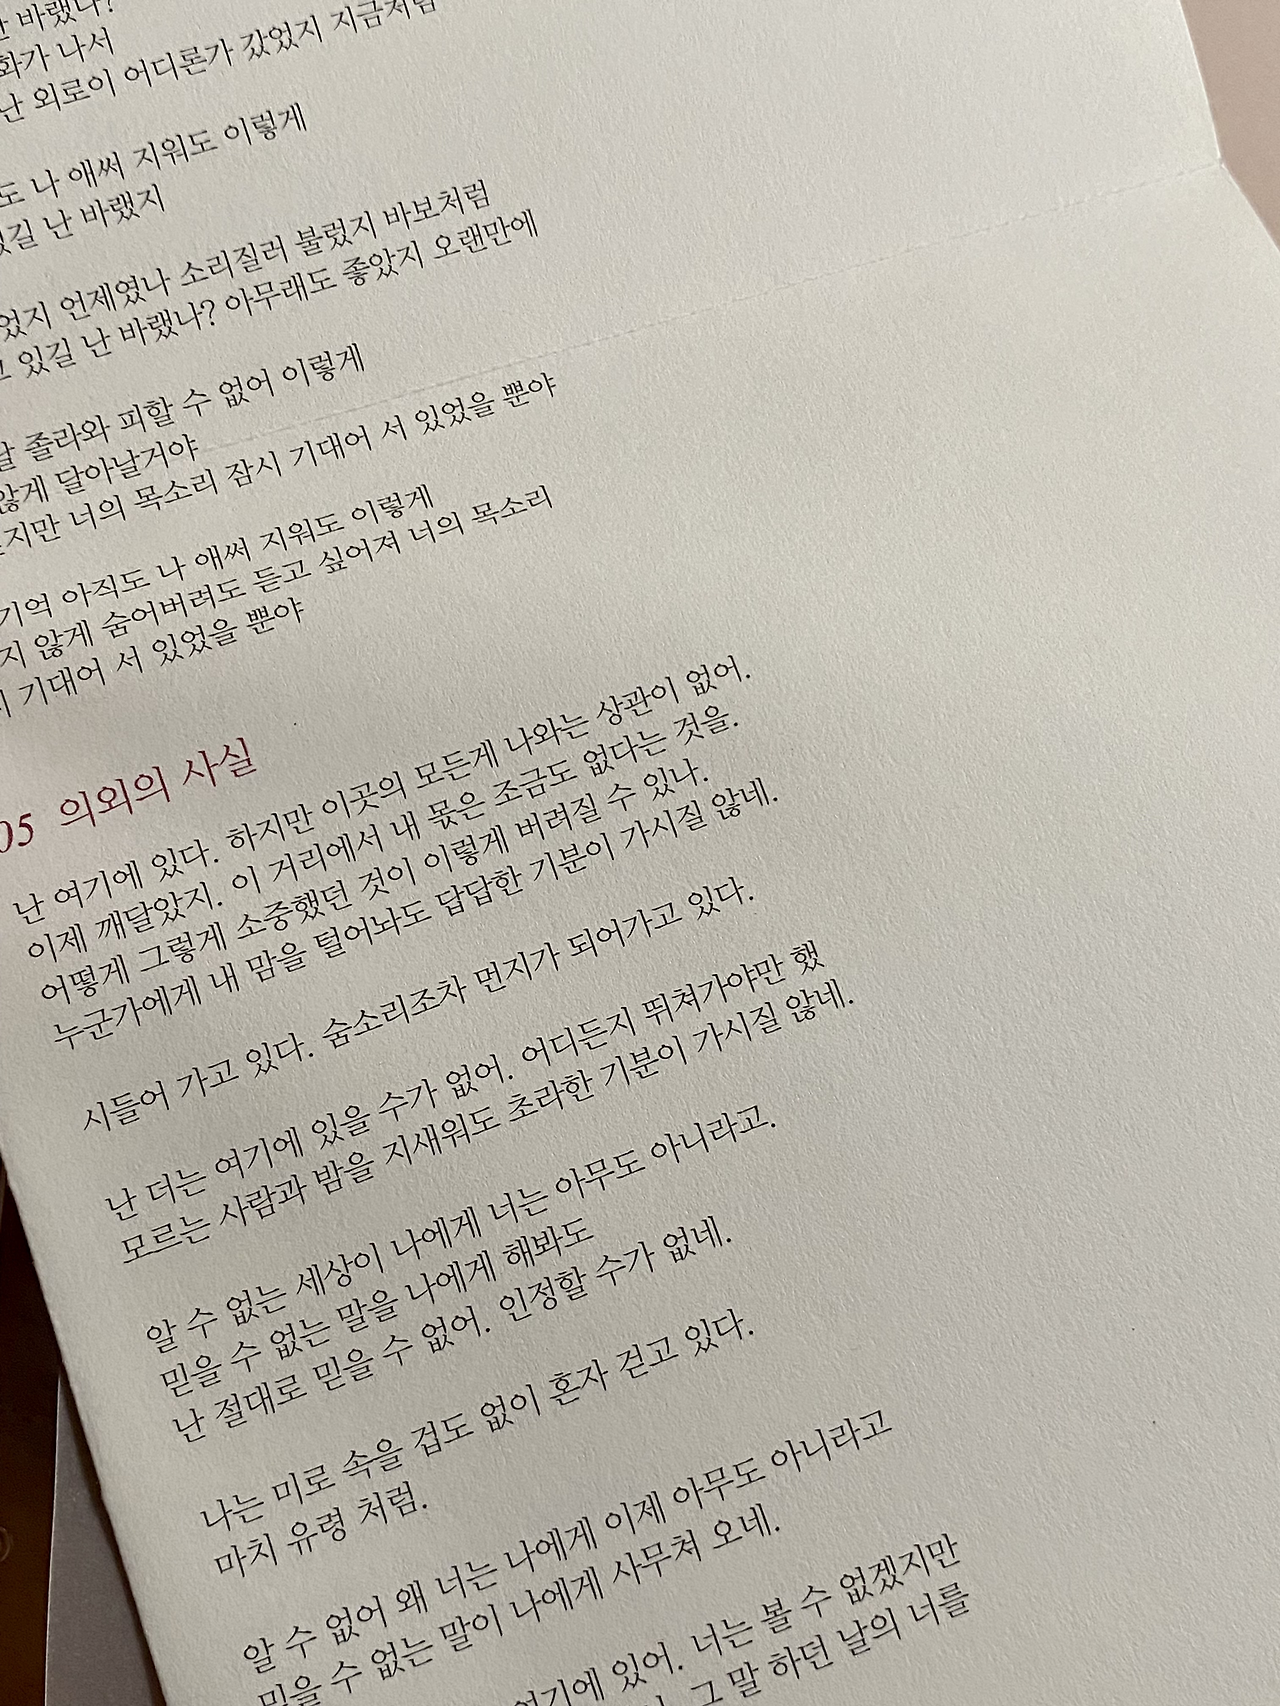 바랬나?
화가 나서
난 외로이 어디론가 갔었지 지금처럼
도 나 애써 지워도 이렇게
있길 난 바랬지
었지 언제였나 소리질러 불렀지 바보처럼
고 있길 난 바랬나? 아무래도 좋았지 오랜만에
날 졸라와 피할 수 없어 이렇게
않게 달아날거야
지만 너의 목소리 잠시 기대어 서 있었을 뿐야
기억 아직도 나 애써 지워도 이렇게
지 않게 숨어버려도 듣고 싶어져 너의 목소리
기대어 서 있었을 뿐야
05 의외의 사실
난 여기에 있다. 하지만 이곳의 모든게 나와는 상관이 없어.
이제 깨달았지. 이 거리에서 내 몫은 조금도 없다는 것을.
어떻게 그렇게 소중했던 것이 이렇게 버려질 수 있나.
누군가에게 내 맘을 털어놔도 답답한 기분이 가시질 않네.
시들어 가고 있다. 숨소리조차 먼지가 되어가고 있다.
난 더는 여기에 있을 수가 없어. 어디든지 뛰쳐가야만 했
모르는 사람과 밤을 지새워도 초라한 기분이 가시질 않네.
알 수 없는 세상이 나에게 너는 아무도 아니라고.
믿을 수 없는 말을 나에게 해봐도
난 절대로 믿을 수 없어. 인정할 수가 없네.
나는 미로 속을 겁도 없이 혼자 걷고 있다.
마치 유령 처럼.
알 수 없어 왜 너는 나에게 이제 아무도 아니라고
믿을 수 없는 말이 나에게 사무쳐 오네.
여기에 있어. 너는 볼 수 없겠지만
그 말 하던 날의 너를